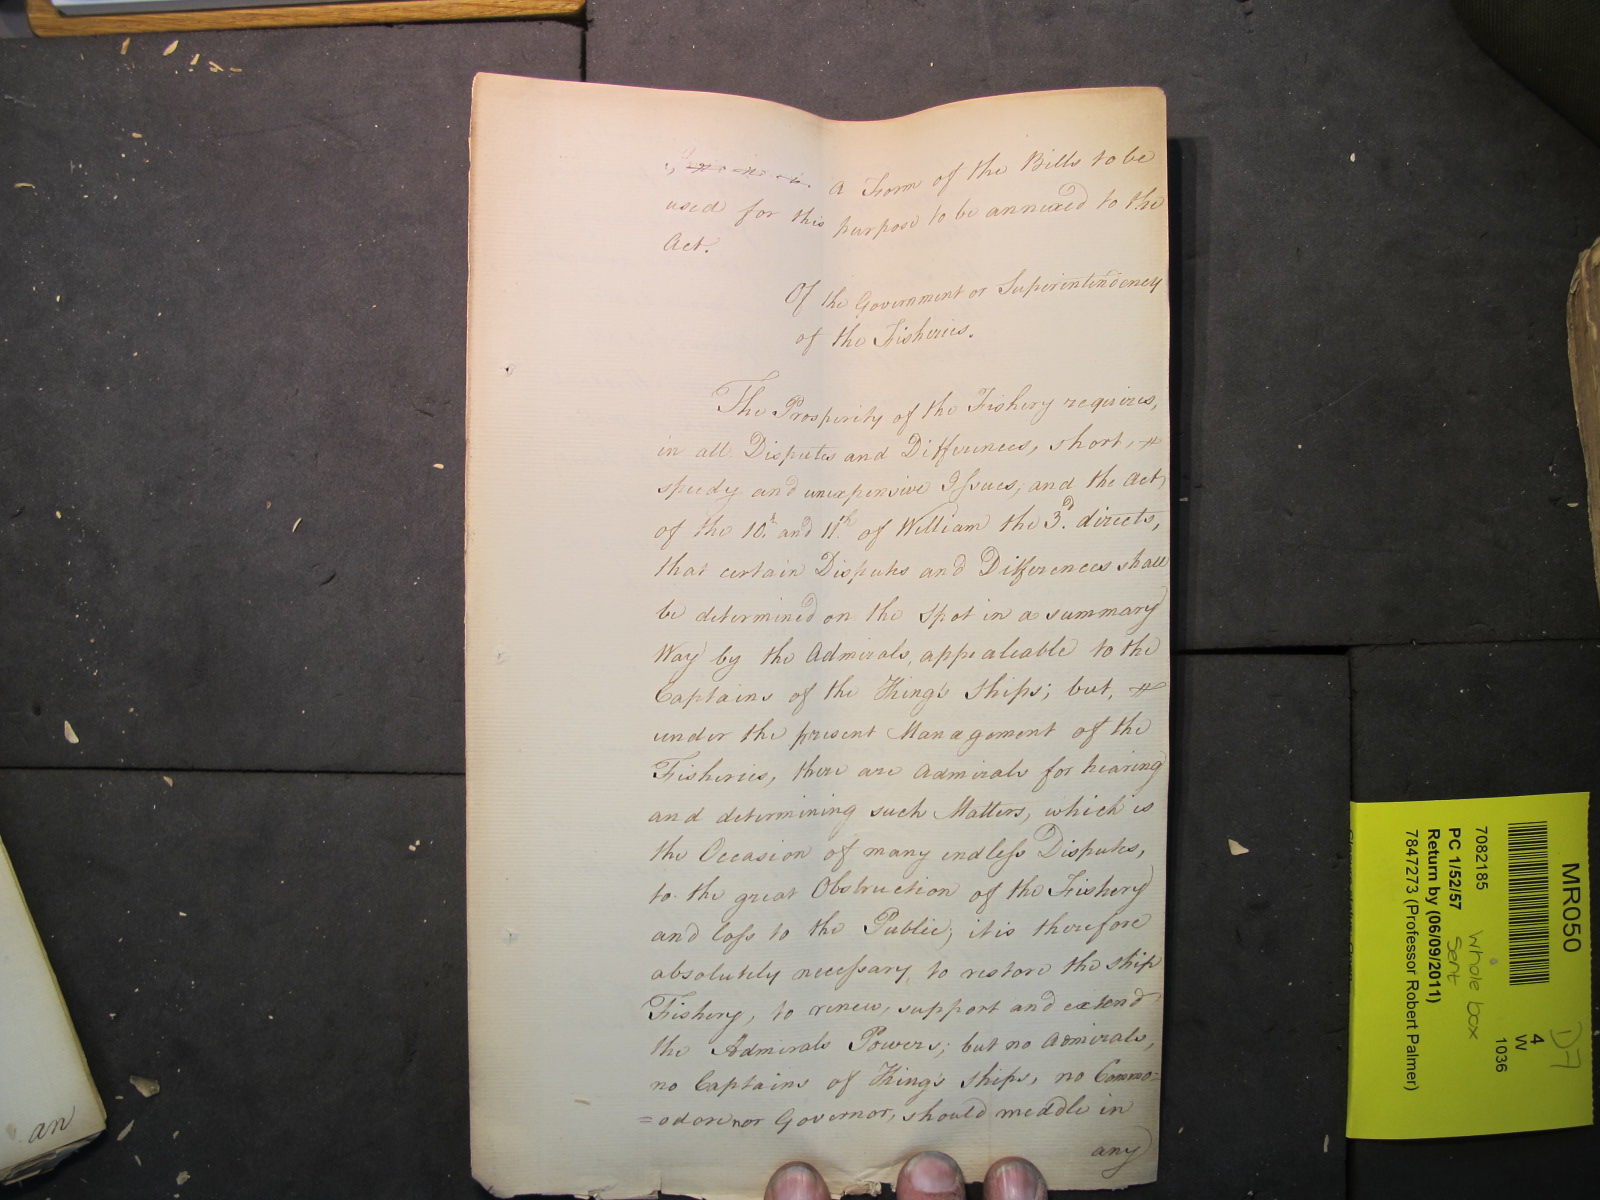 a Form of the Bills to be
used for this purpose to be annexed to the
Act.
Of the Government or Superintendency
of the Fisheries.
The Prosperity of the Fishery requires,
in all Disputes and Differences, short,
speedy and unexpensive Issues, and the Act
of the 10th. and 11th. of William the 3d. directs,
that certain Disputes and Differences shall
be determined on the Spot in a summary
Way by the Admirals, appealeable to the
Captains of the King's Ships; but,
under the present Management of the
Fisheries, there are Admirals for hearing
and determining such Matters, which is
the Occasion of many endless Disputes,
to the great Obstruction of the Fishery
and loss to the Public; it is therefore
absolutely necessary, to restore the ship
Fishery, to renew, support and extend
the Admirals Powers; but no Admirals,
no Captains of King's Ships, no Commo=
=odore nor Governor, should meddle in
any
an
MR050
7082185
PC 1/52/57
Return by (06/09/2011)
7847273 (Professor Robert Palmer)
Whole box
Sent
4
W
1036
D7